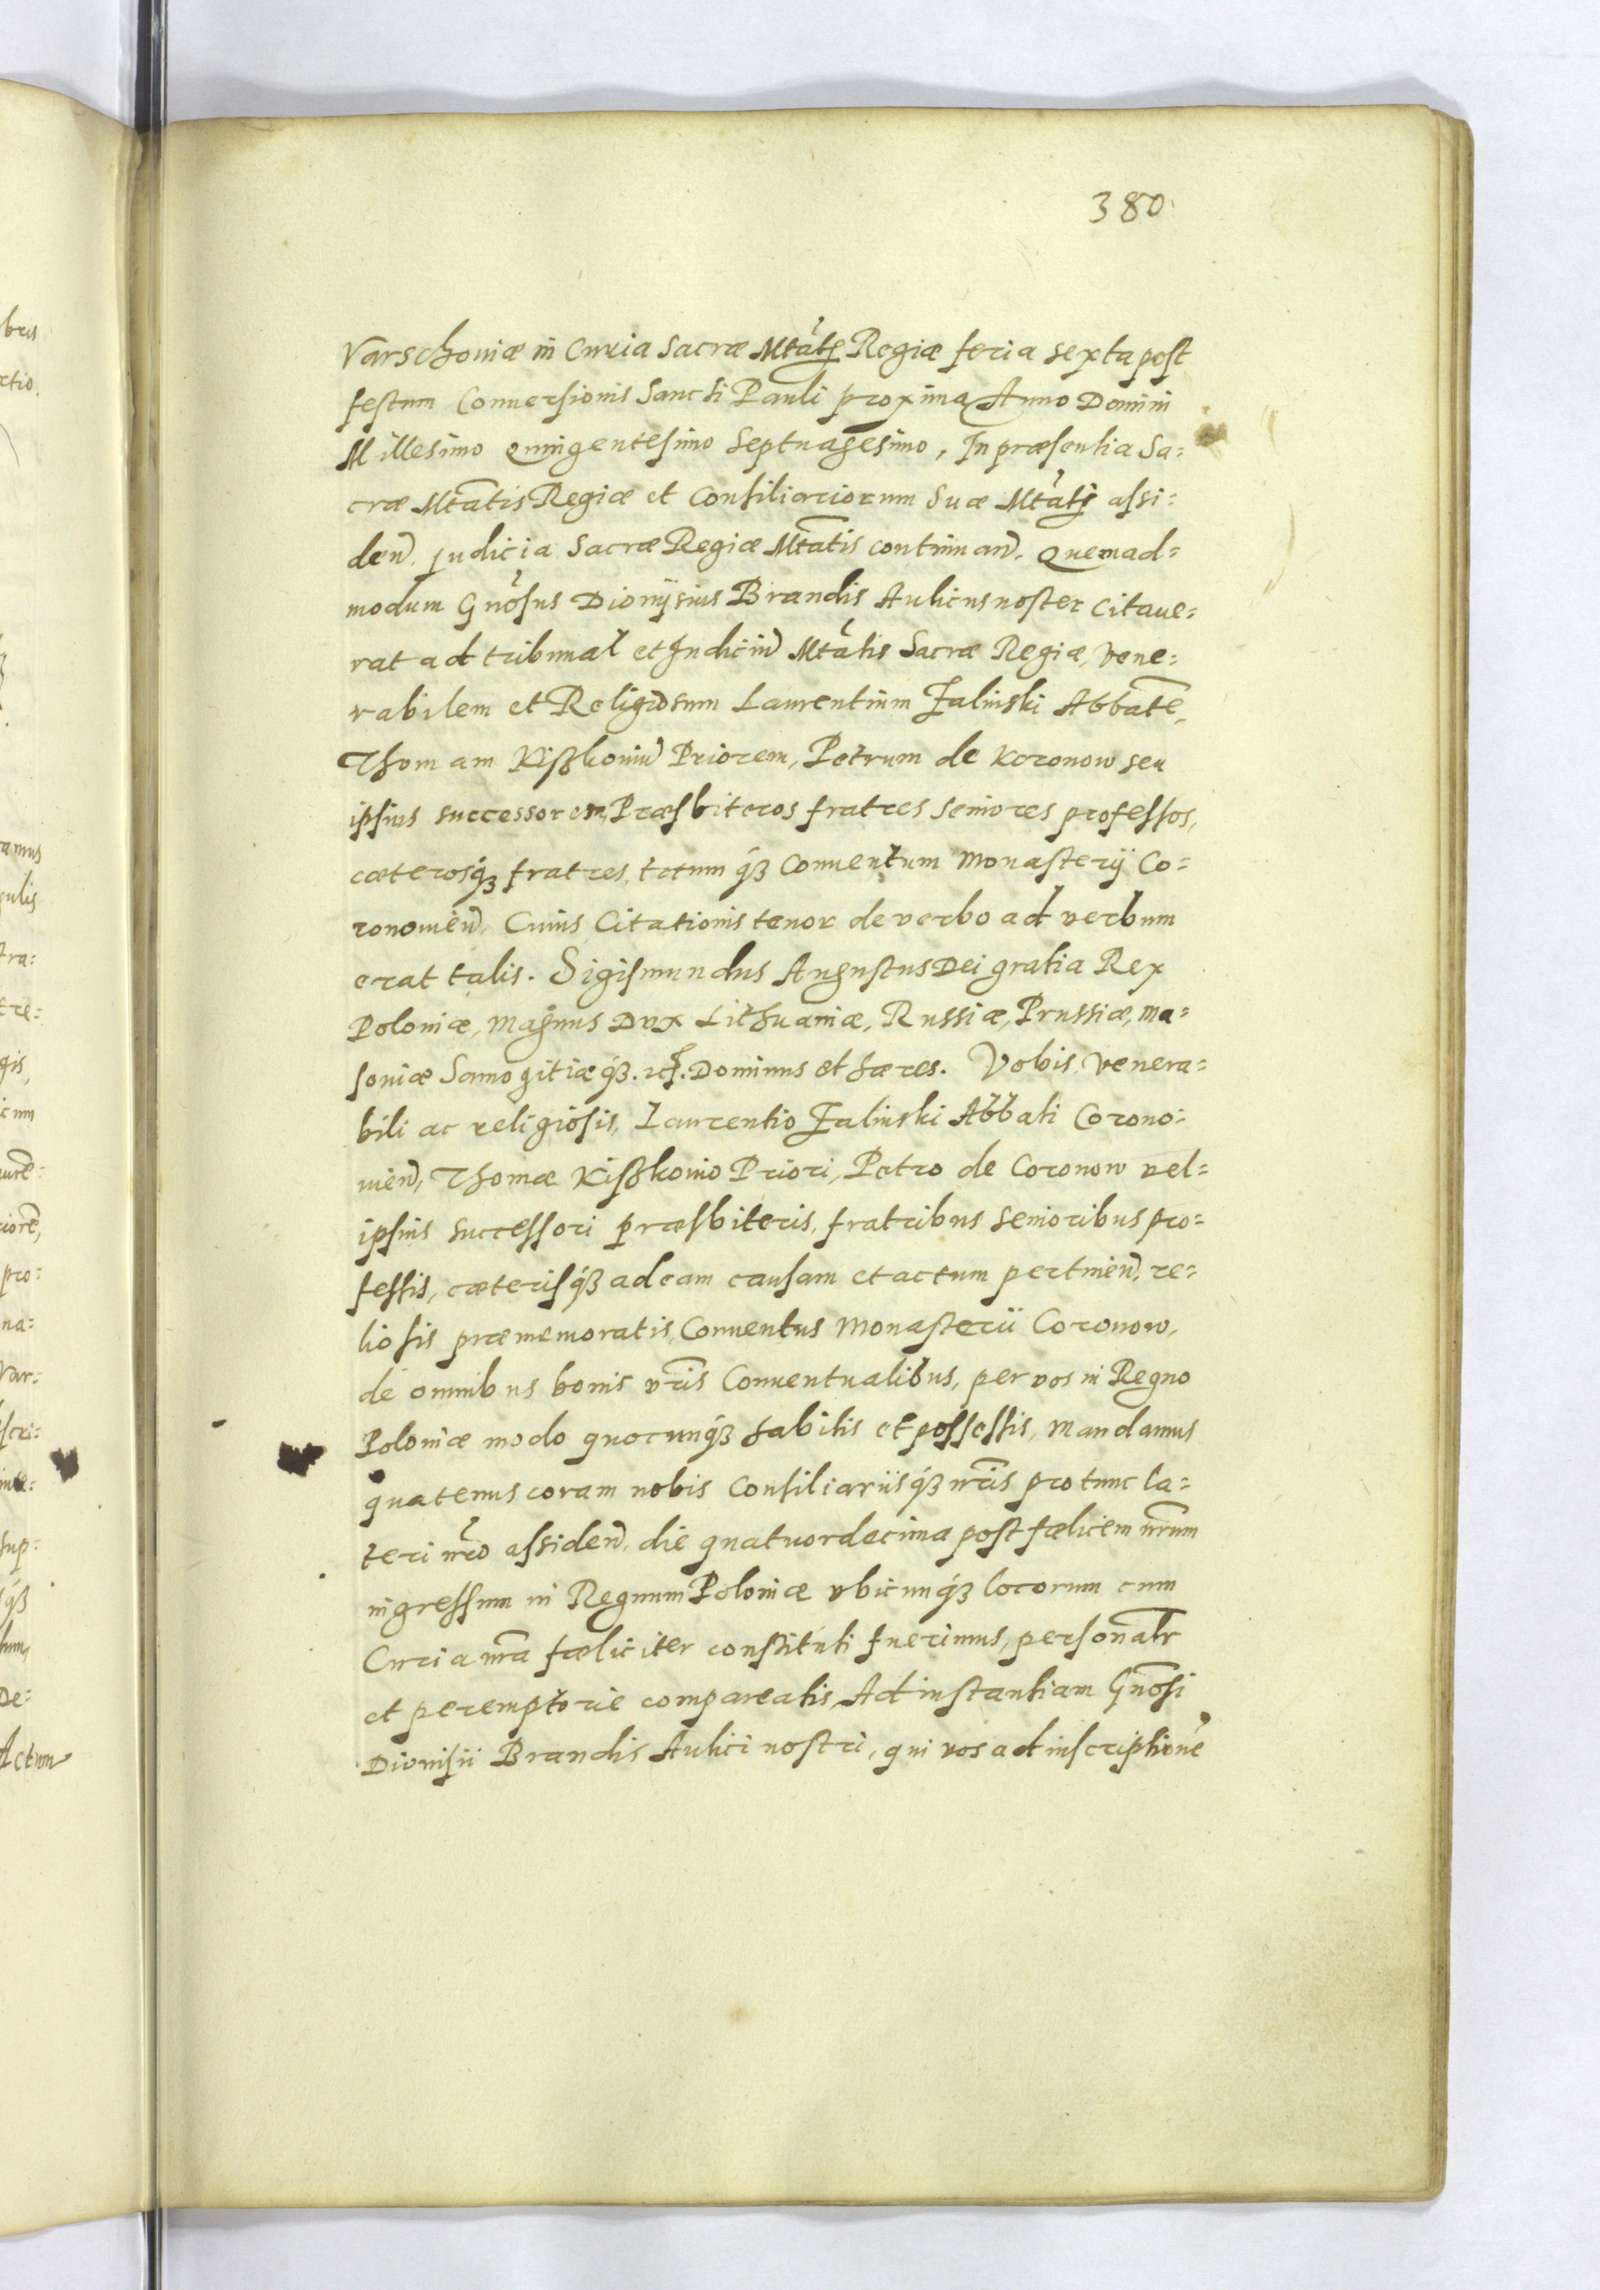 380
Varschoviæ in Curia Sacræ Mtatis Regiæ feria sexta post
festum Conuersionis Sancti Pauli proxima Anno Domini
Millesimo Quingentesimo Septuagesimo, In præsentia Sa=
cræ Mtatis Regiæ et Consiliariorum Suæ Mtatis assi=
den. Judicia Sacræ Regiæ Mtatis continuan. Quemad=
modum Gnosus Dionÿsius Brandis Aulicus noster citaue=
rat ad tribunal et Judiciu Mtatis Sacræ Regiæ, Vene=
rabilem et Religiosum Laurentium Zalinski Abbate,
Thomam Kißkoniu Priorem, Petrum de Koronow seu
ipsius successorem, Præsbiteros fratres seniores professos,
cæterosqз fratres, totum qз Conuentum Monasterÿ Co=
ronouien. Cuius Citationis tenor de verbo ad verbum
erat talis. Sigismundus Augustus Dei gratia Rex
Poloniæ, Magnus Dux Lithuaniæ, Russiæ, Prussiæ, Ma=
souiæ Samogitiæqз. etc. Dominus et hæres. Vobis Venera=
bili ac religiosis, Laurentio Zalinski Abbati Corono=
uien, Thomæ Kißkonio Priori, Petro de Coronow vel=
ipsius successori præsbiteris, fratribus senioribus pro=
fessis, cæterisqз ad eam causam et actum pertinen, re=
liosis præmemoratis, Conuentus Monasterii Coronow,
de omnibus bonis vris Conuentualibus, per vos in Regno
Poloniæ modo quocunqз habitis et possessis, Mandamus
quatenus coram nobis Consiliariisqз nris pro tunc la=
teri nro assiden. die quatuordecima post fælicem nrum
ingressum in Regnum Poloniæ vbicunqз locorum cum
Curia nra fæliciter constituti fuerimus, personalr
et peremptorie compareatis, Ad instantiam Gnosi
Dionisii Brandis Aulici nostri, qui vos ad inscriptione